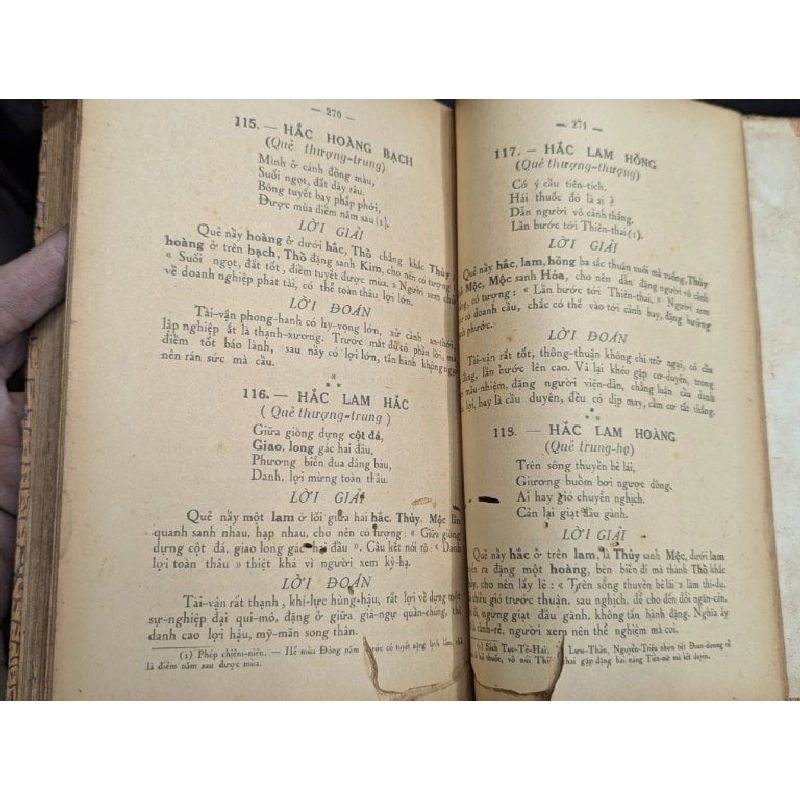 — 270 —
115. — HẮC HOÀNG BẠCH
(Quẻ thượng-trung)
Mình ở cánh đồng màu,
Suối ngọt, đất dày sâu.
Bông tuyết bay phấp phới,
Được mùa điềm năm sau (1).
LỜI GIẢI
Quẻ nầy hoàng ở dưới hắc, Thổ chẳng khắc Thủy
hoàng ở trên bạch, Thổ đặng sanh Kim, cho nên có tượng:
« Suối ngọt, đất tốt, điềm tuyết được mùa. » Người xem
về doanh nghiệp phát tài, có thể toàn thâu lợi lớn.
LỜI ĐOÁN
Tài-vận phong-hanh có hy-vọng lớn, xử cảnh
lập nghiệp ắt là thạnh-xương. Trước mắt dù có phần lời,
điềm tốt báo lành, sau nầy có lợi lớn, tấn hành không
nên rán sức mà cầu.
116. — HẮC LAM HẮC
(Quẻ thượng-trung)
Giữa giồng dựng cột đá,
Giao, long gác hai đầu,
Phương biển đua dâng báu,
Danh, lợi mừng toàn thâu.
LỜI GIẢI
Quẻ nầy một lam ở lối giữa hai hắc, Thủy, Mộc
quanh sanh nhau, hạp nhau, cho nên có tượng : « Giữa giồng
dựng cột đá, giao long gác hai đầu ». Câu kết nói rõ : « Danh
lợi toàn thâu » thiệt khá vì người xem kỳ-hạ.
LỜI ĐOÁN
Tài-vận rất thạnh, khí-lực hùng-hậu, rất lợi về dựng một
sự-nghiệp đại qui-mô, đặng ở giữa giá-ngự quần-chúng, thì
danh cao lợi hậu, mỹ-mãn song thân.
(1) Phép chiêm-niên. — Hễ mùa Đông năm trước có tuyết
là điềm năm sau được mùa.
— 271 —
117. — HẮC LAM HỒNG
(Quẻ thượng-thượng)
Có ý cầu tiên-tích,
Hái thuốc đó là ai ?
Dẫn người vô cảnh thắng,
Lần bước tới Thiên-thai (1).
LỜI GIẢI
Quẻ nầy hắc, lam, hồng ba sắc thuận suôi mà xuống, Thủy
Mộc, Mộc sanh Hỏa, cho nên dẫn đặng người vô cảnh
có tượng : « Lần bước tới Thiên-thai. » Người xem
có doanh cầu, chắc có thể vào tới cảnh hay, đặng hưởng
phước.
LỜI ĐOÁN
Tài-vận rất tốt, thông-thuận không chi trở ngại, có cầu
đặng, lần bước lên cao. Vả lại khéo gặp cơ-duyên, trong
mầu-nhiệm, đặng người viện-dẫn, chẳng luận cầu danh
lợi, hay là cầu duyên, đều có dịp may, cầm cơ tất thắng.
118. — HẮC LAM HOÀNG
(Quẻ trung-hạ)
Trên sông thuyền bẻ lái,
Giương buồm bơi ngược dòng.
Ai hay gió chuyển nghịch.
Cản lại giạt đầu gành.
LỜI GIẢI
Quẻ nầy hắc ở trên lam, là Thủy sanh Mộc, dưới lam
ra đặng một hoàng, bèn biến đi mà thành Thổ khắc
cho nên lấy lẽ : « Trên sông thuyền bẻ lái » làm thí-dụ,
chiều gió trước thuận, sau nghịch, để cho đến đỗi ngăn-cản,
đi, ngừng giạt đầu gành, không tấn hành đặng. Nghĩa ấy
người xem nên thể nghiệm mà coi.
(1) Sách Tục-Tề-Hài. Lưu-Thần, Nguyễn-Triệu nhơn tiết Đoan-dương rủ
hái thuốc, vô núi gặp đặng hai nàng Tiên-nữ mà kết duyên.